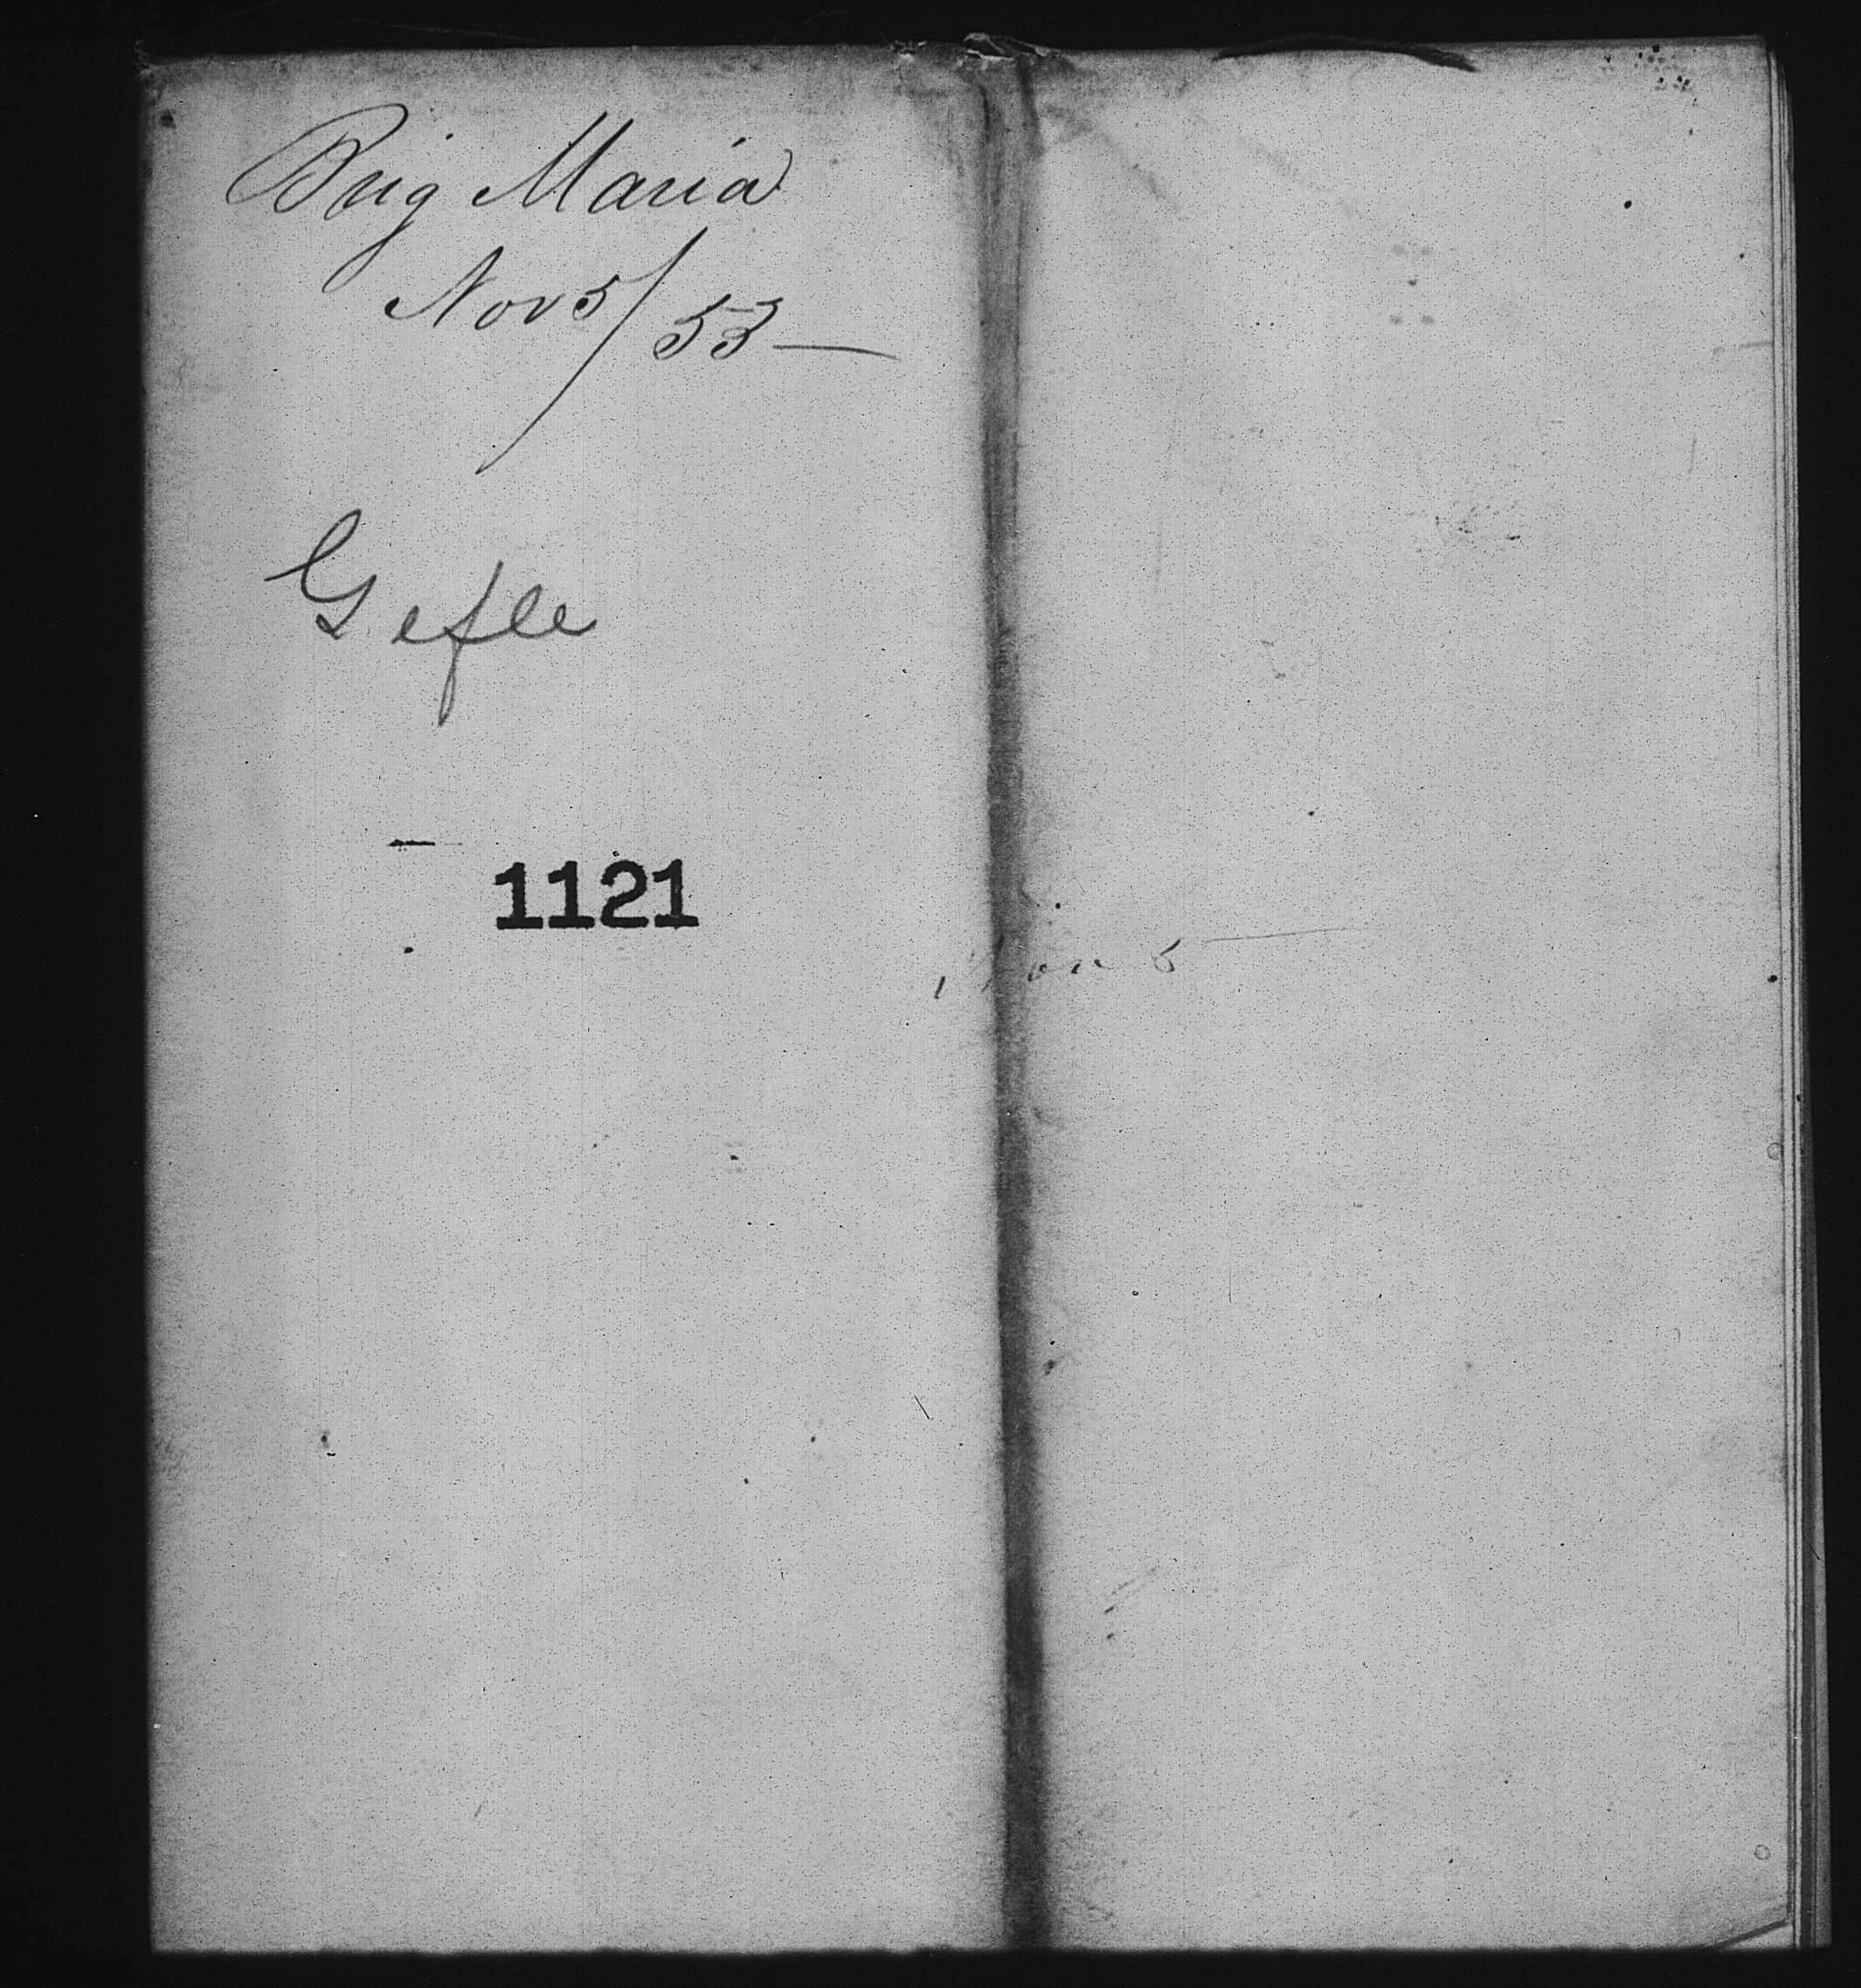 Brig Maria
Nov 5/53—
Gefle
1121